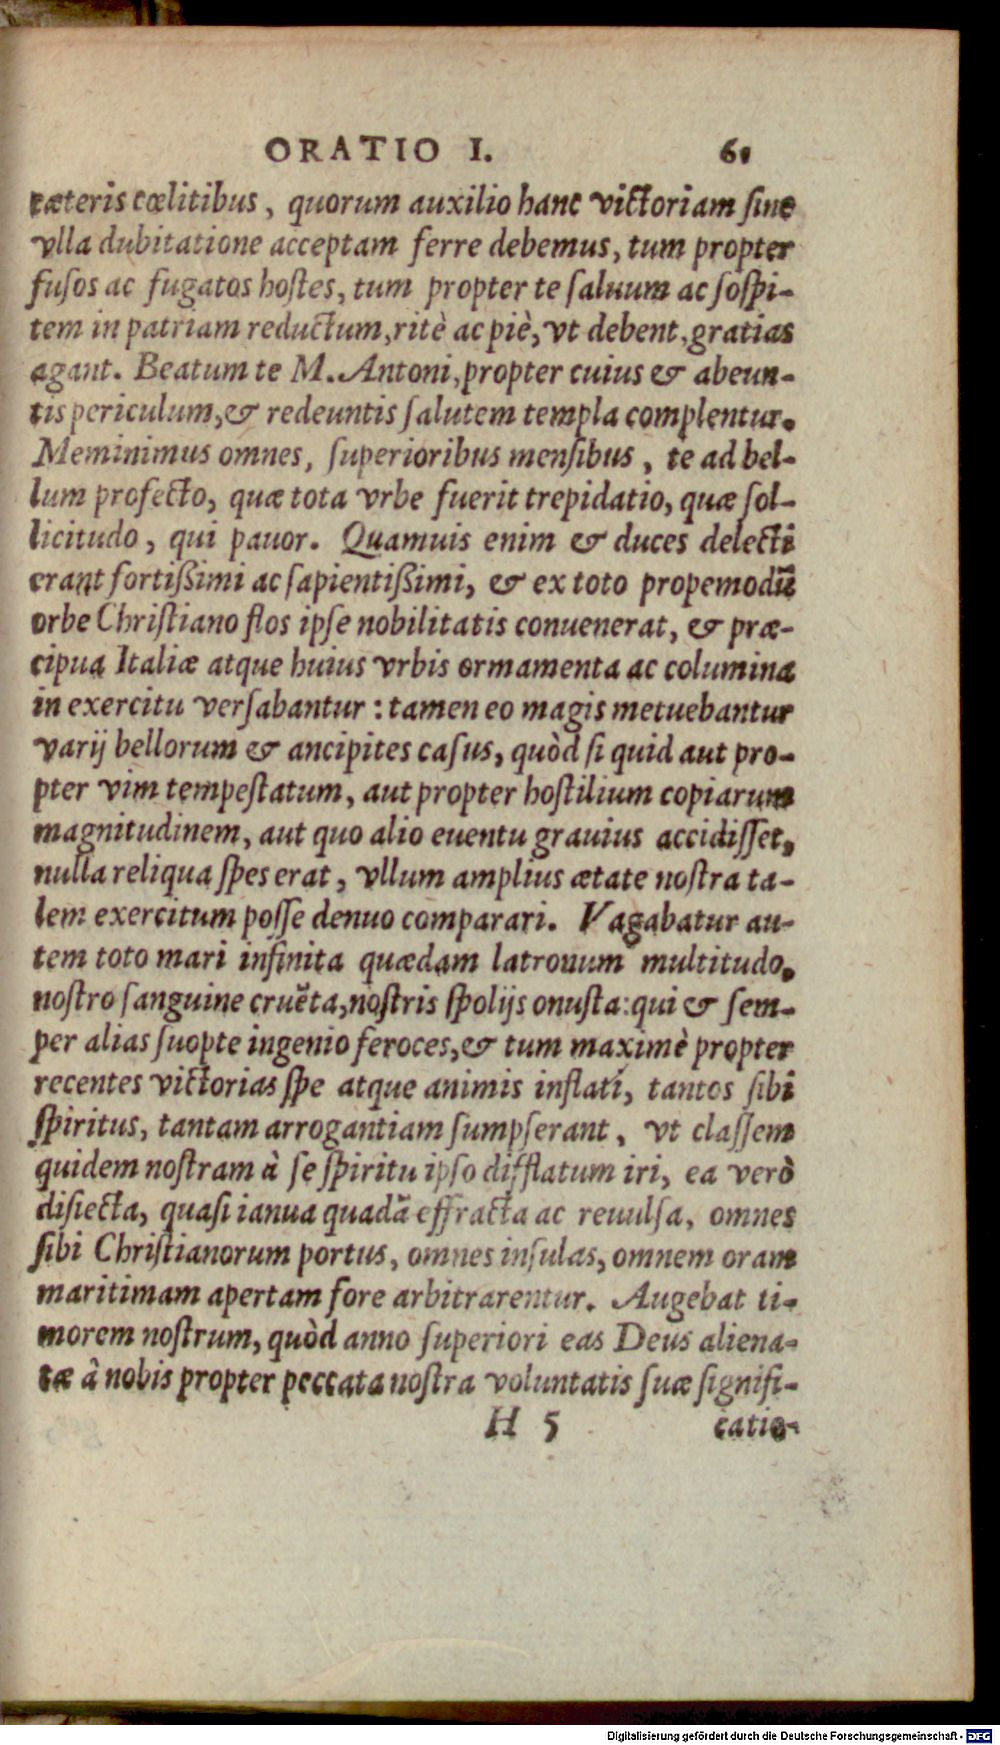 ORATIO I. 61
cæteris cœlitibus, quorum auxilio hanc victoriam sine
vlla dubitatione acceptam ferre debemus, tum propter
fusos ac fugatos hostes, tum propter te saluum ac sospi-
tem in patriam reductum, ritè ac piè, vt debent, gratias
agant. Beatum te M. Antoni, propter cuius & abeun-
tis periculum, & redeuntis salutem templa complentur.
Meminimus omnes, superioribus mensibus, te ad bel-
lum profecto, quæ tota vrbe fuerit trepidatio, quæ sol-
licitudo, qui pauor. Quamuis enim & duces delecti
erant fortißimi ac sapientißimi, & ex toto propemodũ
orbe Christiano flos ipse nobilitatis conuenerat, & præ-
cipua Italiæ atque huius vrbis ormamenta ac columina
in exercitu versabantur: tamen eo magis metuebantur
varij bellorum & ancipites casus, quòd si quid aut pro-
pter vim tempestatum, aut propter hostilium copiarum
magnitudinem, aut quo alio euentu grauius accidisset,
nulla reliqua spes erat, vllum amplius ætate nostra ta-
lem exercitum posse denuo comparari. Vagabatur au-
tem toto mari infinita quædam latronum multitudo,
nostro sanguine cruẽta, nostris spolijs onusta: qui & sem-
per alias suopte ingenio feroces, & tum maximè propter
recentes victorias spe atque animis inflati, tantos sibi
spiritus, tantam arrogantiam sumpserant, vt classem
quidem nostram à se spiritu ipso difflatum iri, ea verò
disiecta, quasi ianua quadã effracta ac reuulsa, omnes
sibi Christianorum portus, omnes insulas, omnem oram
maritimam apertam fore arbitrarentur. Augebat ti-
morem nostrum, quòd anno superiori eas Deus aliena-
tæ à nobis propter peccata nostra voluntatis suæ signifi-
H 5 catio-
Digitalisierung gefördert durch die Deutsche Forschungsgemeinschaft - DFG